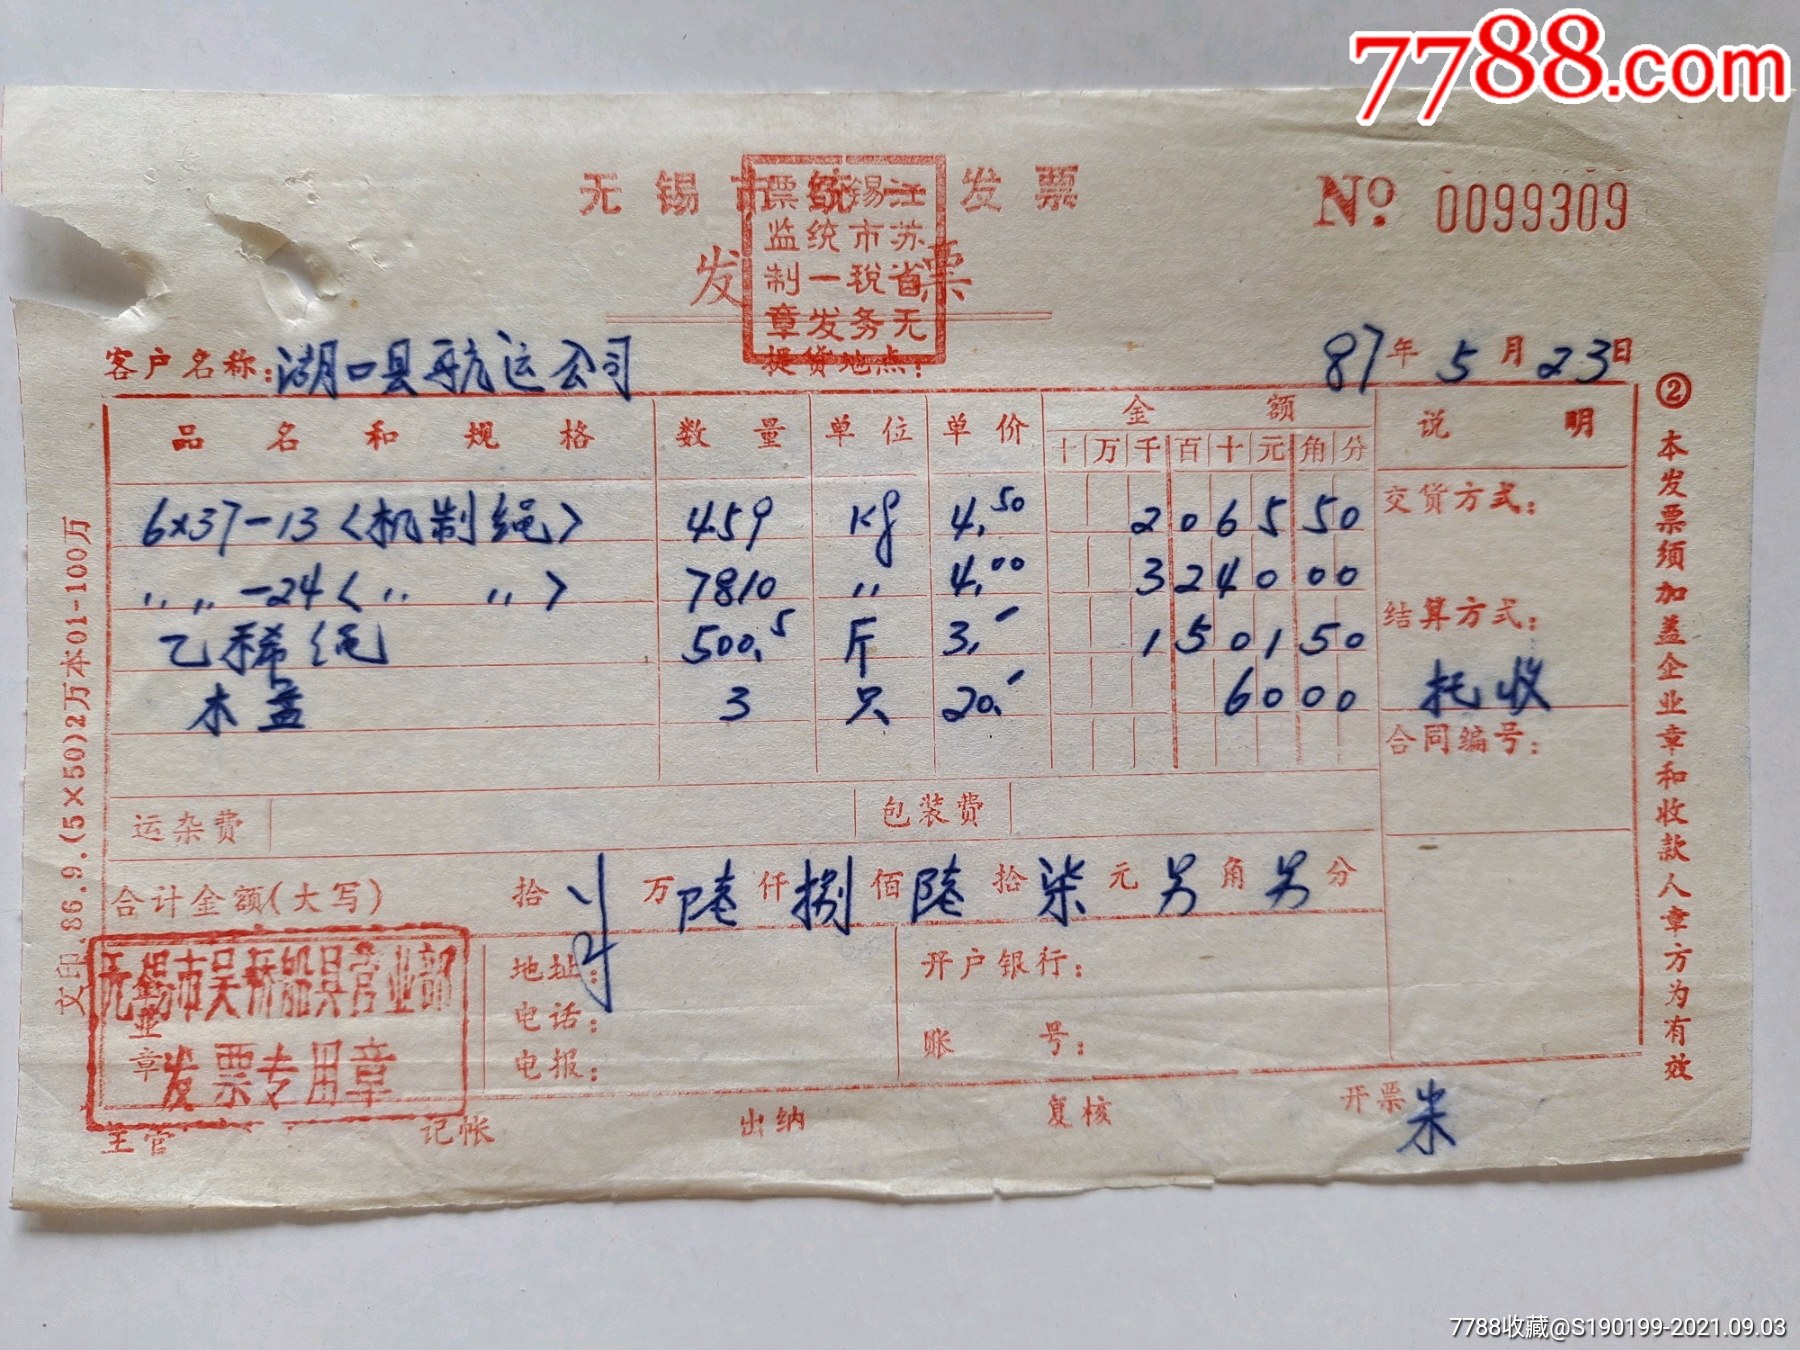 7788.com
无锡市统一发票
发票
江苏省无锡市税务统一发票监制章
No 0099309
客户名称:湖口县航运公司 提货地点: 87年5月23日
品名和规格 数量 单位 单价 金额 说明
十万千百十元角分
6×37-13<机制绳> 459 kg 4.50 2065 50 交货方式:
〃〃-24<〃 〃> 7810 〃 4.00 3240 00
结算方式:
乙稀绳 500.5 斤 3.- 1501 50
木盖 3 只 20.- 60 00 托收
合同编号:
运杂费 包装费
合计金额(大写) 拾 万陆仟捌佰陆拾柒元另角另分
企业章
无锡市吴桥船具营业部
发票专用章
地址: 开户银行:
电话:
账号:
电报:
主管 记帐 出纳 复核 开票 朱
②本发票须加盖企业章和收款人章方为有效
文印.86.9.(5×50)2万本01-100万
7788收藏@S190199-2021.09.03